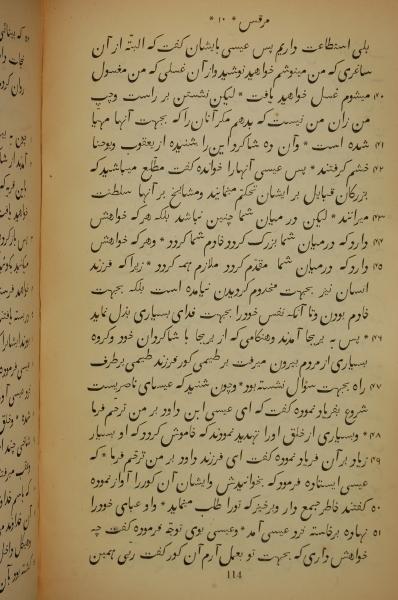 مرقس * ۱۰ *
بلی استطاعت داریم پس عیسی بایشان گفت که البته از آن
ساغری که من مینوشم خواهید نوشید و از آن غسلی که من مغسول
۴۰ میشوم غسل خواهید یافت * لیکن نشستن بر راست و چپ
من زان من نیست که بدهم مگر آنان را که بجهت آنها مهیا
۴۱ شده است * و آن ده شاکرد این را شنیده از یعقوب و یوحنا
۴۲ خشم کرفتند * پس عیسی آنها را خوانده کفت مطّلع میباشید که
بزرکان قبایل بر ایشان تحکم مینمایند و مشایخ بر آنها سلطنت
۴۳ میرانند * لیکن در میان شما چنین نباشد بلکه هر که خواهش
۴۴ دارد که درمیان شما بزرک کردد خادم شما کردد * و هر که خواهش
۴۵ دارد که درمیان شما مقدّم کردد ملازم همه کردد * زیرا که فرزند
انسان نیز بجهت مخدوم کردیدن نیامده است بلکه بجهت
خادم بودن و تا آنکه نفس خود را بجهت فدای بسیاری بذل نماید
۴۶ * پس به یریحا آمدند وهنکامی که از یریحا با شاکردان خود وکروه
بسیاری از مردم بیرون میرفت برطیمی کور فرزند طیمی برطرف
۴۷ راه بجهت سؤال نشسته بود * وچون شنید که عیسای ناصریست
شروع بفریاد نموده کفت که ای عیسی ابن داود بر من ترحّم فرما
۴۸ * وبسیاری از خلق اورا تهدید نمودند که خاموش کردد که او بسیار
۴۹ زیاد تر آن فریاد نموده کفت ای فرزند داود بر من ترحّم فرما * که
عیسی ایستاده فرمود که بخوانیدش وایشان آن کور را آواز نموده
۵۰ کفتند خاطر جمع دار و برخیز که تورا طلب مینماید * واو عبای خود را
۵۱ نهاده برخاسته نزد عیسی آمد * وعیسی بوی توجّه فرموده کفت چه
خواهش داری که بجهت تو بعمل آرم آن کور کفت ربّی همین
114